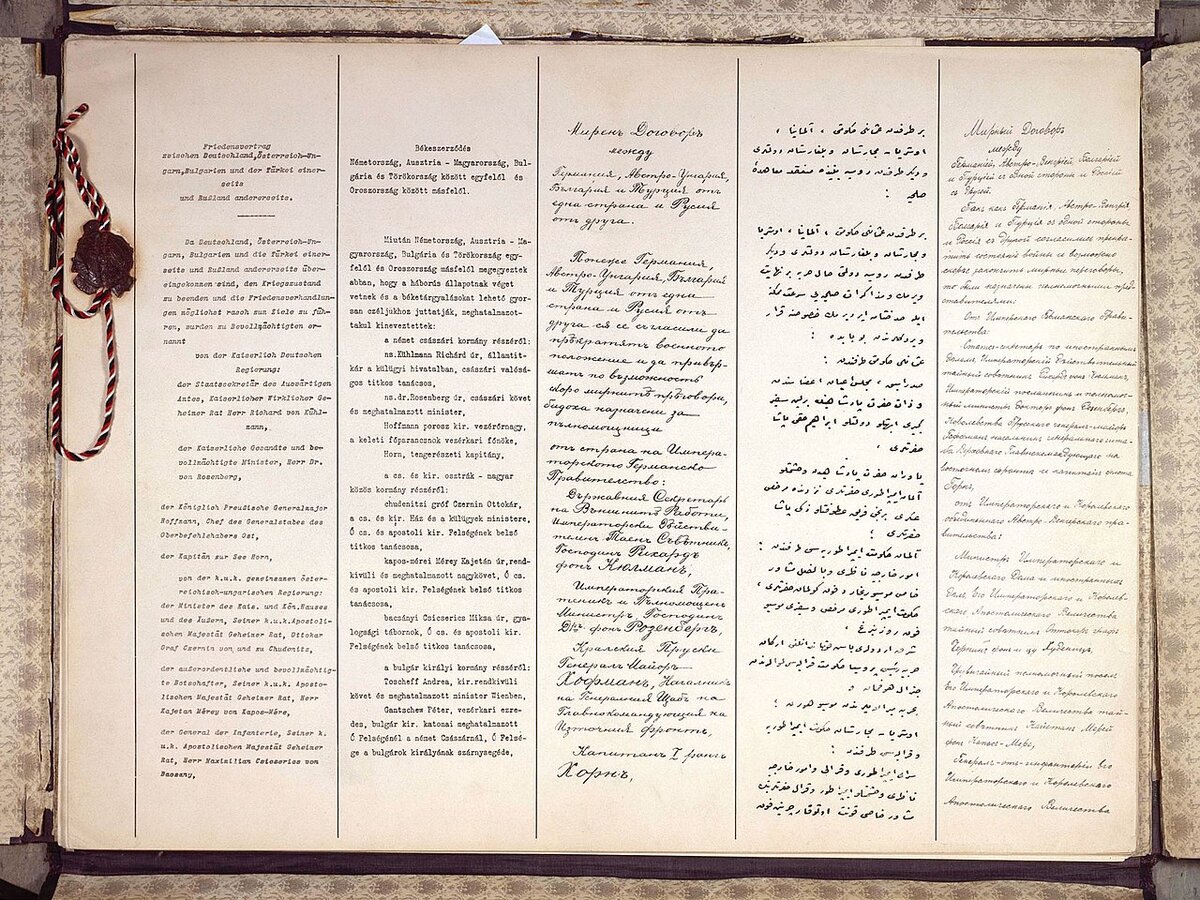 Friedensvertrag
zwischen Deutschland,Österreich-Un-
garn,Bulgarien und der Türkei einer-
seits
und Rußland andererseits.
Da Deutschland, Österreich-Un-
garn, Bulgarien und die Türkei einer-
seits und Rußland andererseits über-
eingekommen sind, den Kriegszustand
zu beenden und die Friedensverhandlun-
gen möglichst rasch zum Ziele zu füh-
ren, wurden zu Bevollmächtigten er-
nannt
von der Kaiserlich Deutschen
Regierung:
der Staatssekretär des Auswärtigen
Amtes, Kaiserlicher Wirklicher Ge-
heimer Rat Herr Richard von Kühl-
mann,
der Kaiserliche Gesandte und be-
vollmächtigte Minister, Herr Dr.
von Rosenberg,
der Königlich Preußische Generalmajor
Hoffmann, Chef des Generalstabes des
Oberbefehlshabers Ost,
der Kapitän zur See Horn,
von der k.u.k. gemeinsamen öster-
reichisch-ungarischen Regierung:
der Minister des Kais. und Kön.Hauses
und des Äußern, Seiner k.u.k.Apostoli-
schen Majestät Geheimer Rat, Ottokar
Graf Czernin von und zu Chudenitz,
der außerordentliche und bevollmächtig-
te Botschafter, Seiner k.u.k. Aposto-
lischen Majestät Geheimer Rat, Herr
Kajetan Mérey von Kapos-Mére,
der General der Infanterie, Seiner k.
u.k. Apostolischen Majestät Geheimer
Rat, Herr Maximilian Csicserics von
Bacsany,
Békeszerződés
Németország, Ausztria - Magyarország, Bul-
gária és Törökország között egyfelől és
Oroszország között másfélől.
Miután Németország, Ausztria - Ma-
gyarország, Bulgária és Törökország egy-
felől és Oroszország másfelől megegyeztek
abban, hogy a háborús állapotnak véget
vetnek és a béketárgyalásokat lehető gyor-
san czéljukhoz juttatják, meghatalmazot-
takul kineveztettek:
a német császári kormány részéről:
ns.Kühlmann Richárd úr, államtit-
kár a külügyi hivatalban, császári valósá-
gos titkos tanácsos,
ns.dr.Rosenberg úr, császári követ
és meghatalmazott minister,
Hoffmann porosz kir. vezérőrnagy,
a keleti főparancsnok vezérkari főnöke,
Horn, tengerészeti kapitány,
a cs. és kir. osztrák - magyar
közös kormány részéről:
chudenitzi gróf Czernin Ottokár,
a cs. és kir. Ház és a külügyek ministere,
Ő cs. és apostoli kir. Felségének belső
titkos tanácsosa,
kapos-mérei Mérey Kajetán úr,rend-
kivüli és meghatalmazott nagykövet, Ő cs.
és apostoli kir. Felségének belső titkos
tanácsosa,
bacsányi Csicserics Miksa úr, gya-
logsági tábornok, Ő cs. és apostoli kir.
Felségének belső titkos tanácsosa,
a bulgár királyi kormány részéről:
Toscheff Andrea, kir.rendkivüli
követ és meghatalmazott minister Wienben,
Gantschew Péter, vezérkari ezre-
des, bulgár kir. katonai meghatalmazott
Ő Felségénél a német Császárnál, Ő Felsé-
ge a bulgárok királyának szárnysegéde,
Миренъ Договоръ
между
Германия, Австро-Унгария,
България и Турция отъ
една страна и Русия
отъ друга.
Понеже Германия,
Австро-Унгария, България
и Турция отъ една
страна и Русия отъ
друга сѫ се съгласили да
прѣкратятъ военното
положение и да привър-
шатъ по възможность
скоро миришъ прѣговори,
бидоха назначени за
пълномощници
отъ страна на Импера-
торското Германско
Правителство:
Държавния Секретарь
на Външнитѣ Работи,
Императорски Дѣйстви-
теленъ Таенъ Съвѣтникъ,
Господинъ Рихардъ
фонъ Кюлманъ,
Императорския Пра-
теникъ и Пълномощенъ
Министръ, Господинъ
Д-ръ фонъ Розенбергъ,
Кралския Пруски
Генералъ Майоръ
Хофманъ, Началникъ
на Генералния Щабъ на
Главнокомандующия на
Източния фронтъ,
Капитанъ I рангъ
Хорнъ,
بر طرفدن عثمانلی حکومتی ، آلمانیا ،
اوستریا - مجارستان و بلغارستان دولتلری
ودیگر طرفدن روسیه بیننده منعقد معاهدهٔ
صلحیه :
بر طرفدن عثمانلی حکومتی ، آلمانیا ، اوستریا
و مجارستان و بلغارستان دولتلری و دیگر
طرفدن روسیه دولتی حال حربه بر نهایت
ویرمك و مذاکرات صلحیه یی سرعت ممکنه
ایله
عثمانلی حکومتی طرفندن :
حضرتلری ،
حضرتلری ؛
آلمان حکومت ایمپراطوریه سی طرفندن :
امور خارجه ناظری
فون روزنبرغ ،
جنرال هوفمان و
اوستریا - مجارستان حکومت ایمپراطوریه
و قرالیه سی طرفندن :
Мирный Договоръ
между
Германіей, Австро-Венгріей, Болгаріей
и Турціей съ одной стороны и Россіей
съ другой.
Такъ какъ Германія, Австро-Венгрія,
Болгарія и Турція съ одной стороны
и Россія съ другой согласились прекра-
тить состояніе войны и возможно
скорѣе закончить мирные переговоры,
то были назначены полномочными пред-
ставителями:
Отъ Императорскаго Германскаго Прави-
тельства:
Статсъ-секретарь по иностраннымъ
дѣламъ, Императорскій Дѣйствительный
тайный совѣтникъ Рихардъ фонъ Кюльманъ,
Императорскій посланникъ и полномоч-
ный министръ Докторъ фонъ Розенбергъ,
Королевства Прусскаго генералъ-майоръ
Гофманъ, начальникъ генеральнаго шта-
ба Верховнаго Главнокомандующаго на
восточномъ фронтѣ и капитанъ флота
Горнъ,
отъ Императорскаго и Королевскаго
общаго Австро-Венгерскаго пра-
вительства:
Министръ Императорскаго и
Королевскаго Дома и иностранныхъ
дѣлъ, Его Императорскаго и Королев-
скаго Апостолическаго Величества
тайный совѣтникъ Оттокаръ графъ
Чернинъ фонъ и цу Худеницъ,
Чрезвычайный и полномочный посолъ
Его Императорскаго и Королевскаго
Апостолическаго Величества тай-
ный совѣтникъ Каэтанъ Мерей
фонъ Капосъ-Мере,
Генералъ-отъ-инфантеріи Его
Императорскаго и Королевскаго
Апостолическаго Величества